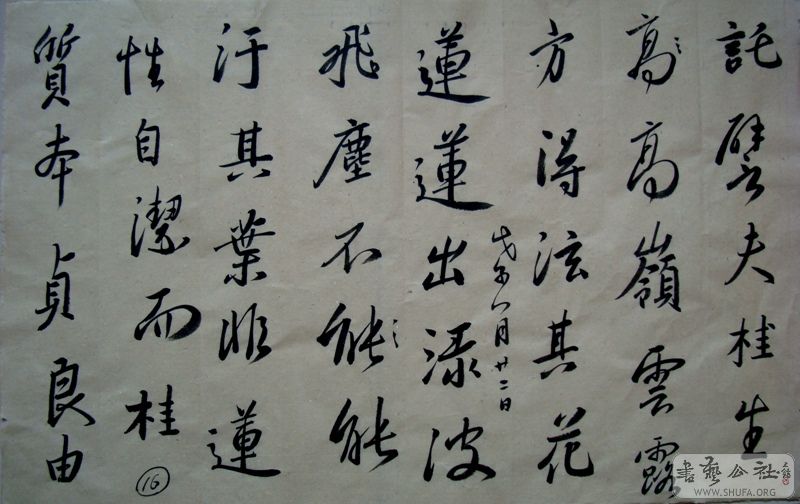 託譬夫桂生
高高嶺雲露
方得泫其花
戊子八月廿二日
蓮蓮出淥波
飛塵不能能
汙其葉非蓮
性自潔而桂
質本貞良由
16
書藝公社
WWW.SHUFA.ORG